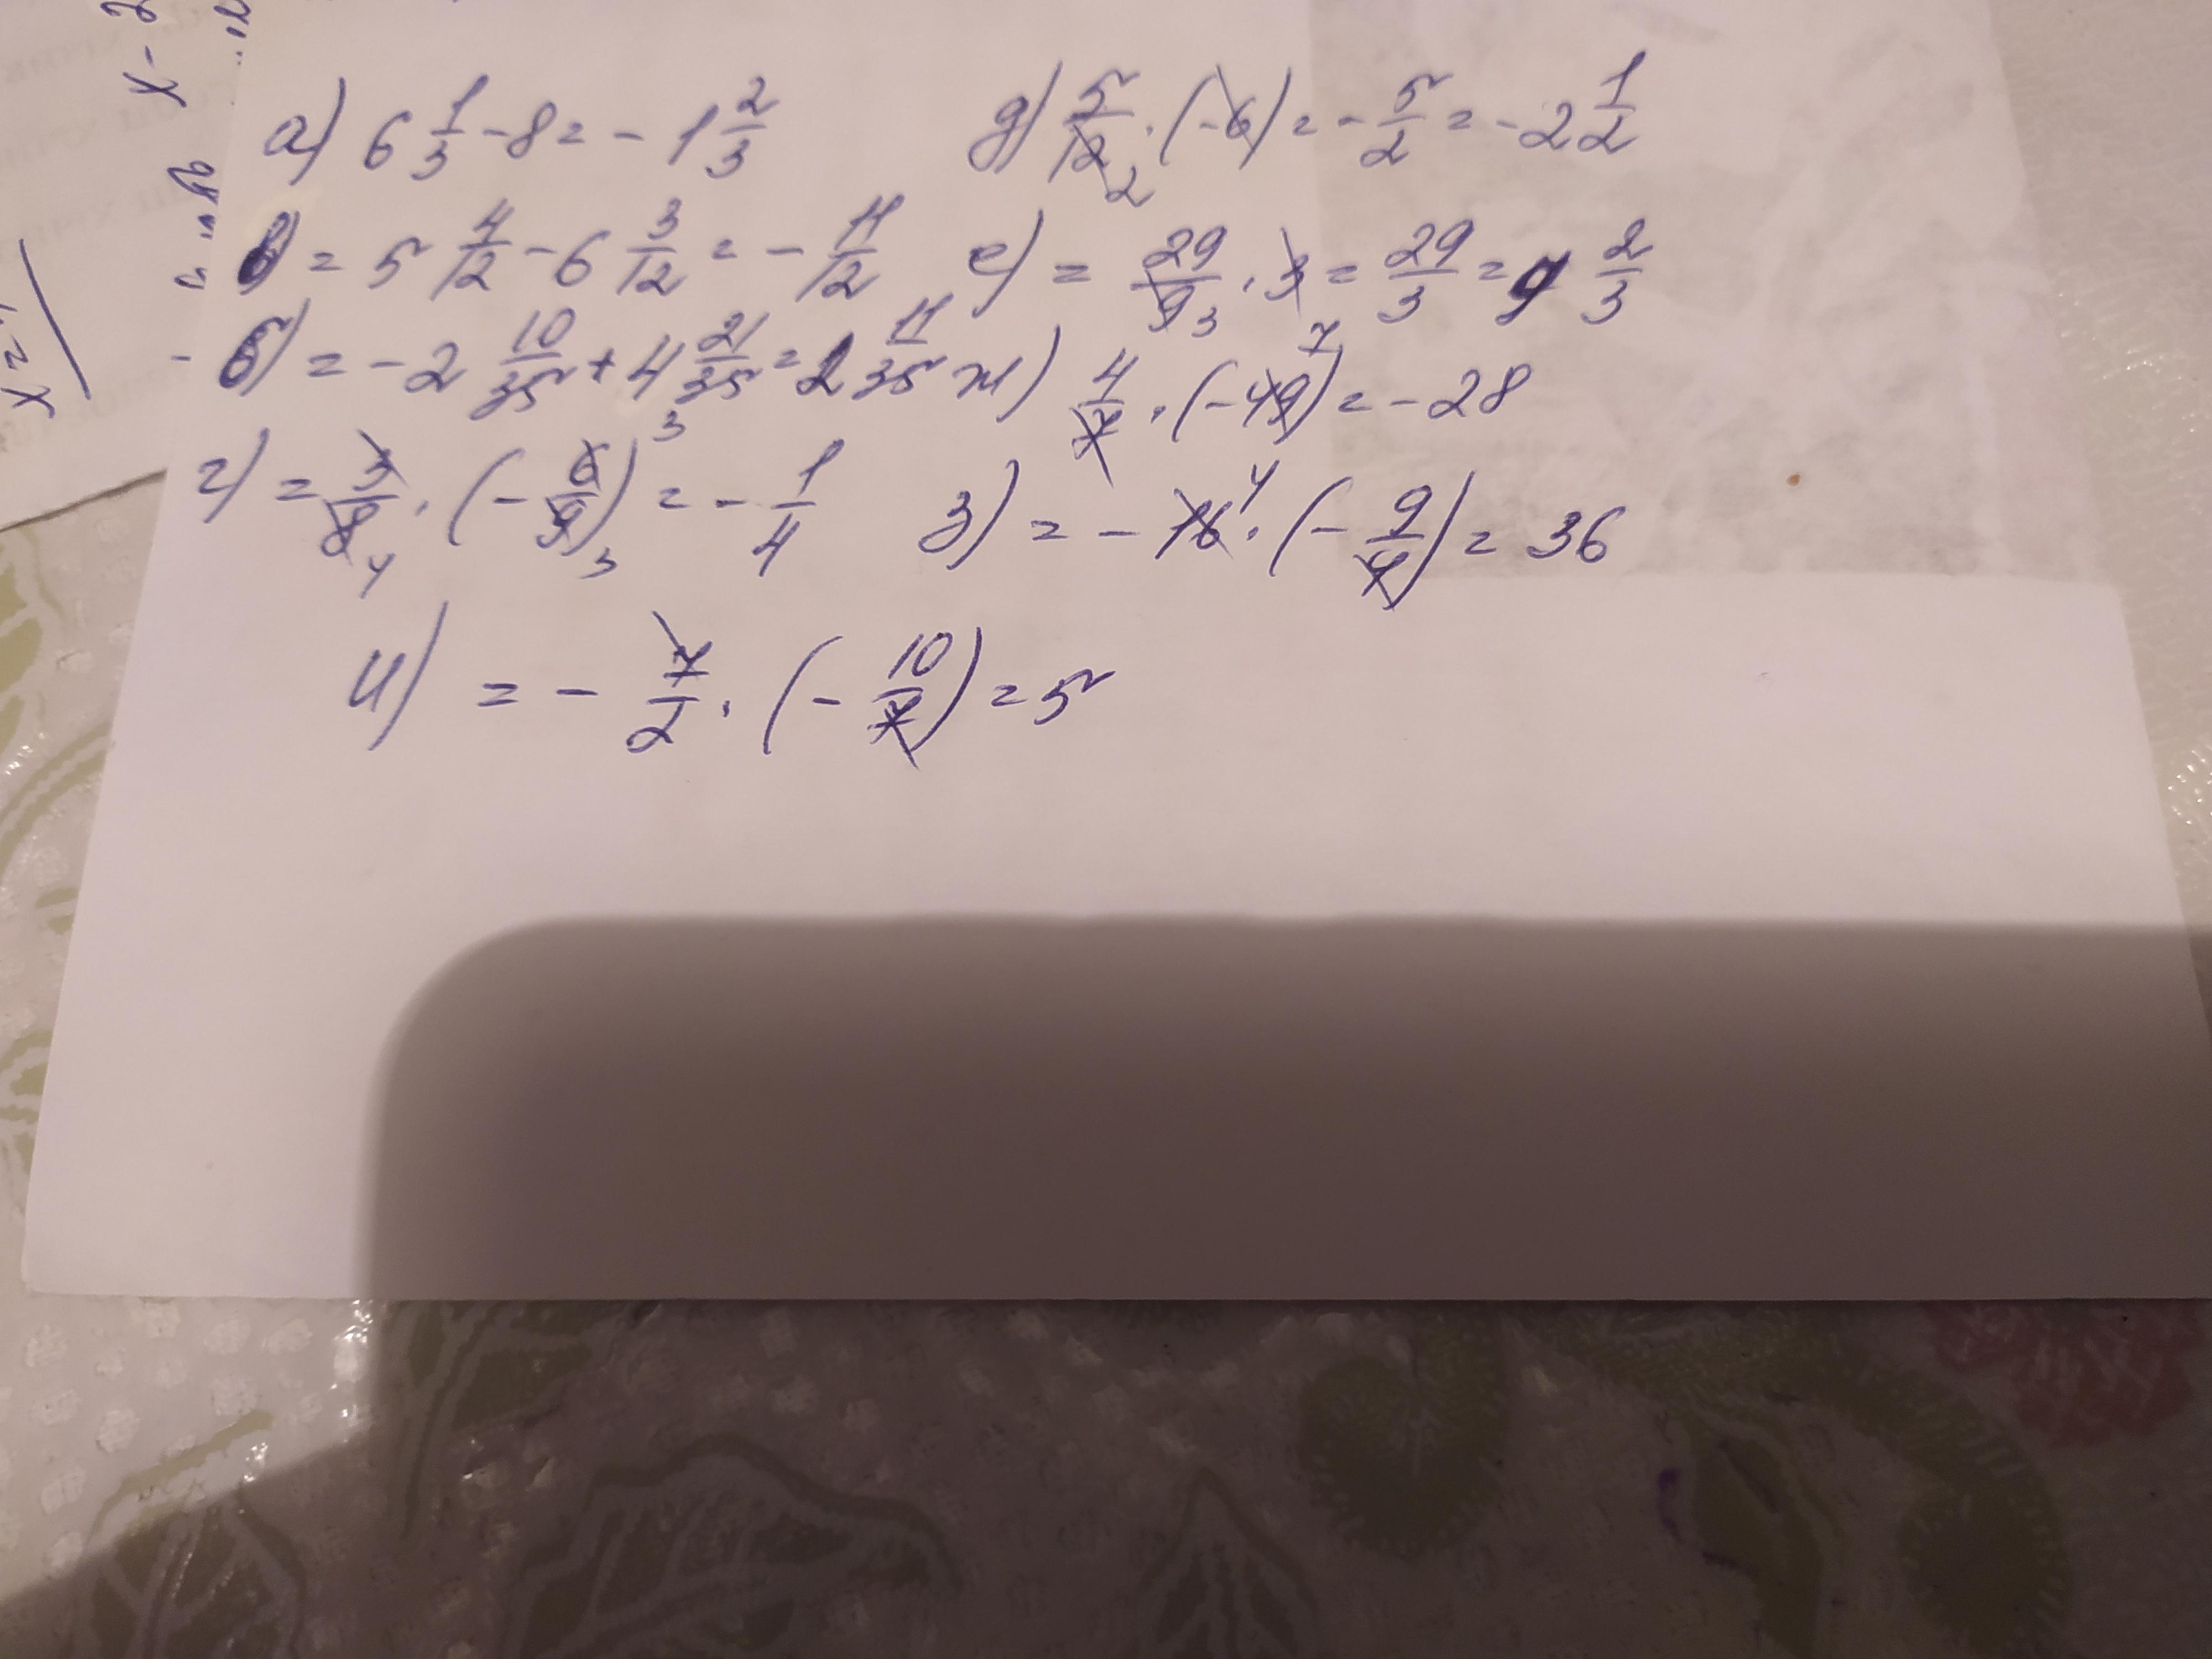 а) 6 1/3 - 8 = - 1 2/3
д) 5/12 2 · (-6) = - 5/2 = - 2 1/2
в) = 5 4/12 - 6 3/12 = - 11/12
е) = 29/9 3 · 3 = 29/3 = 9 2/3
б) = - 2 10/35 + 4 21/35 = 2 11/35
ж) 4/7 · (-49) 7 = - 28
г) = 3/8 4 · (- 6/9) 3 3 = - 1/4
з) = - 16 4 · (- 9/4) = 36
и) = - 7/2 · (- 10/7) = 5